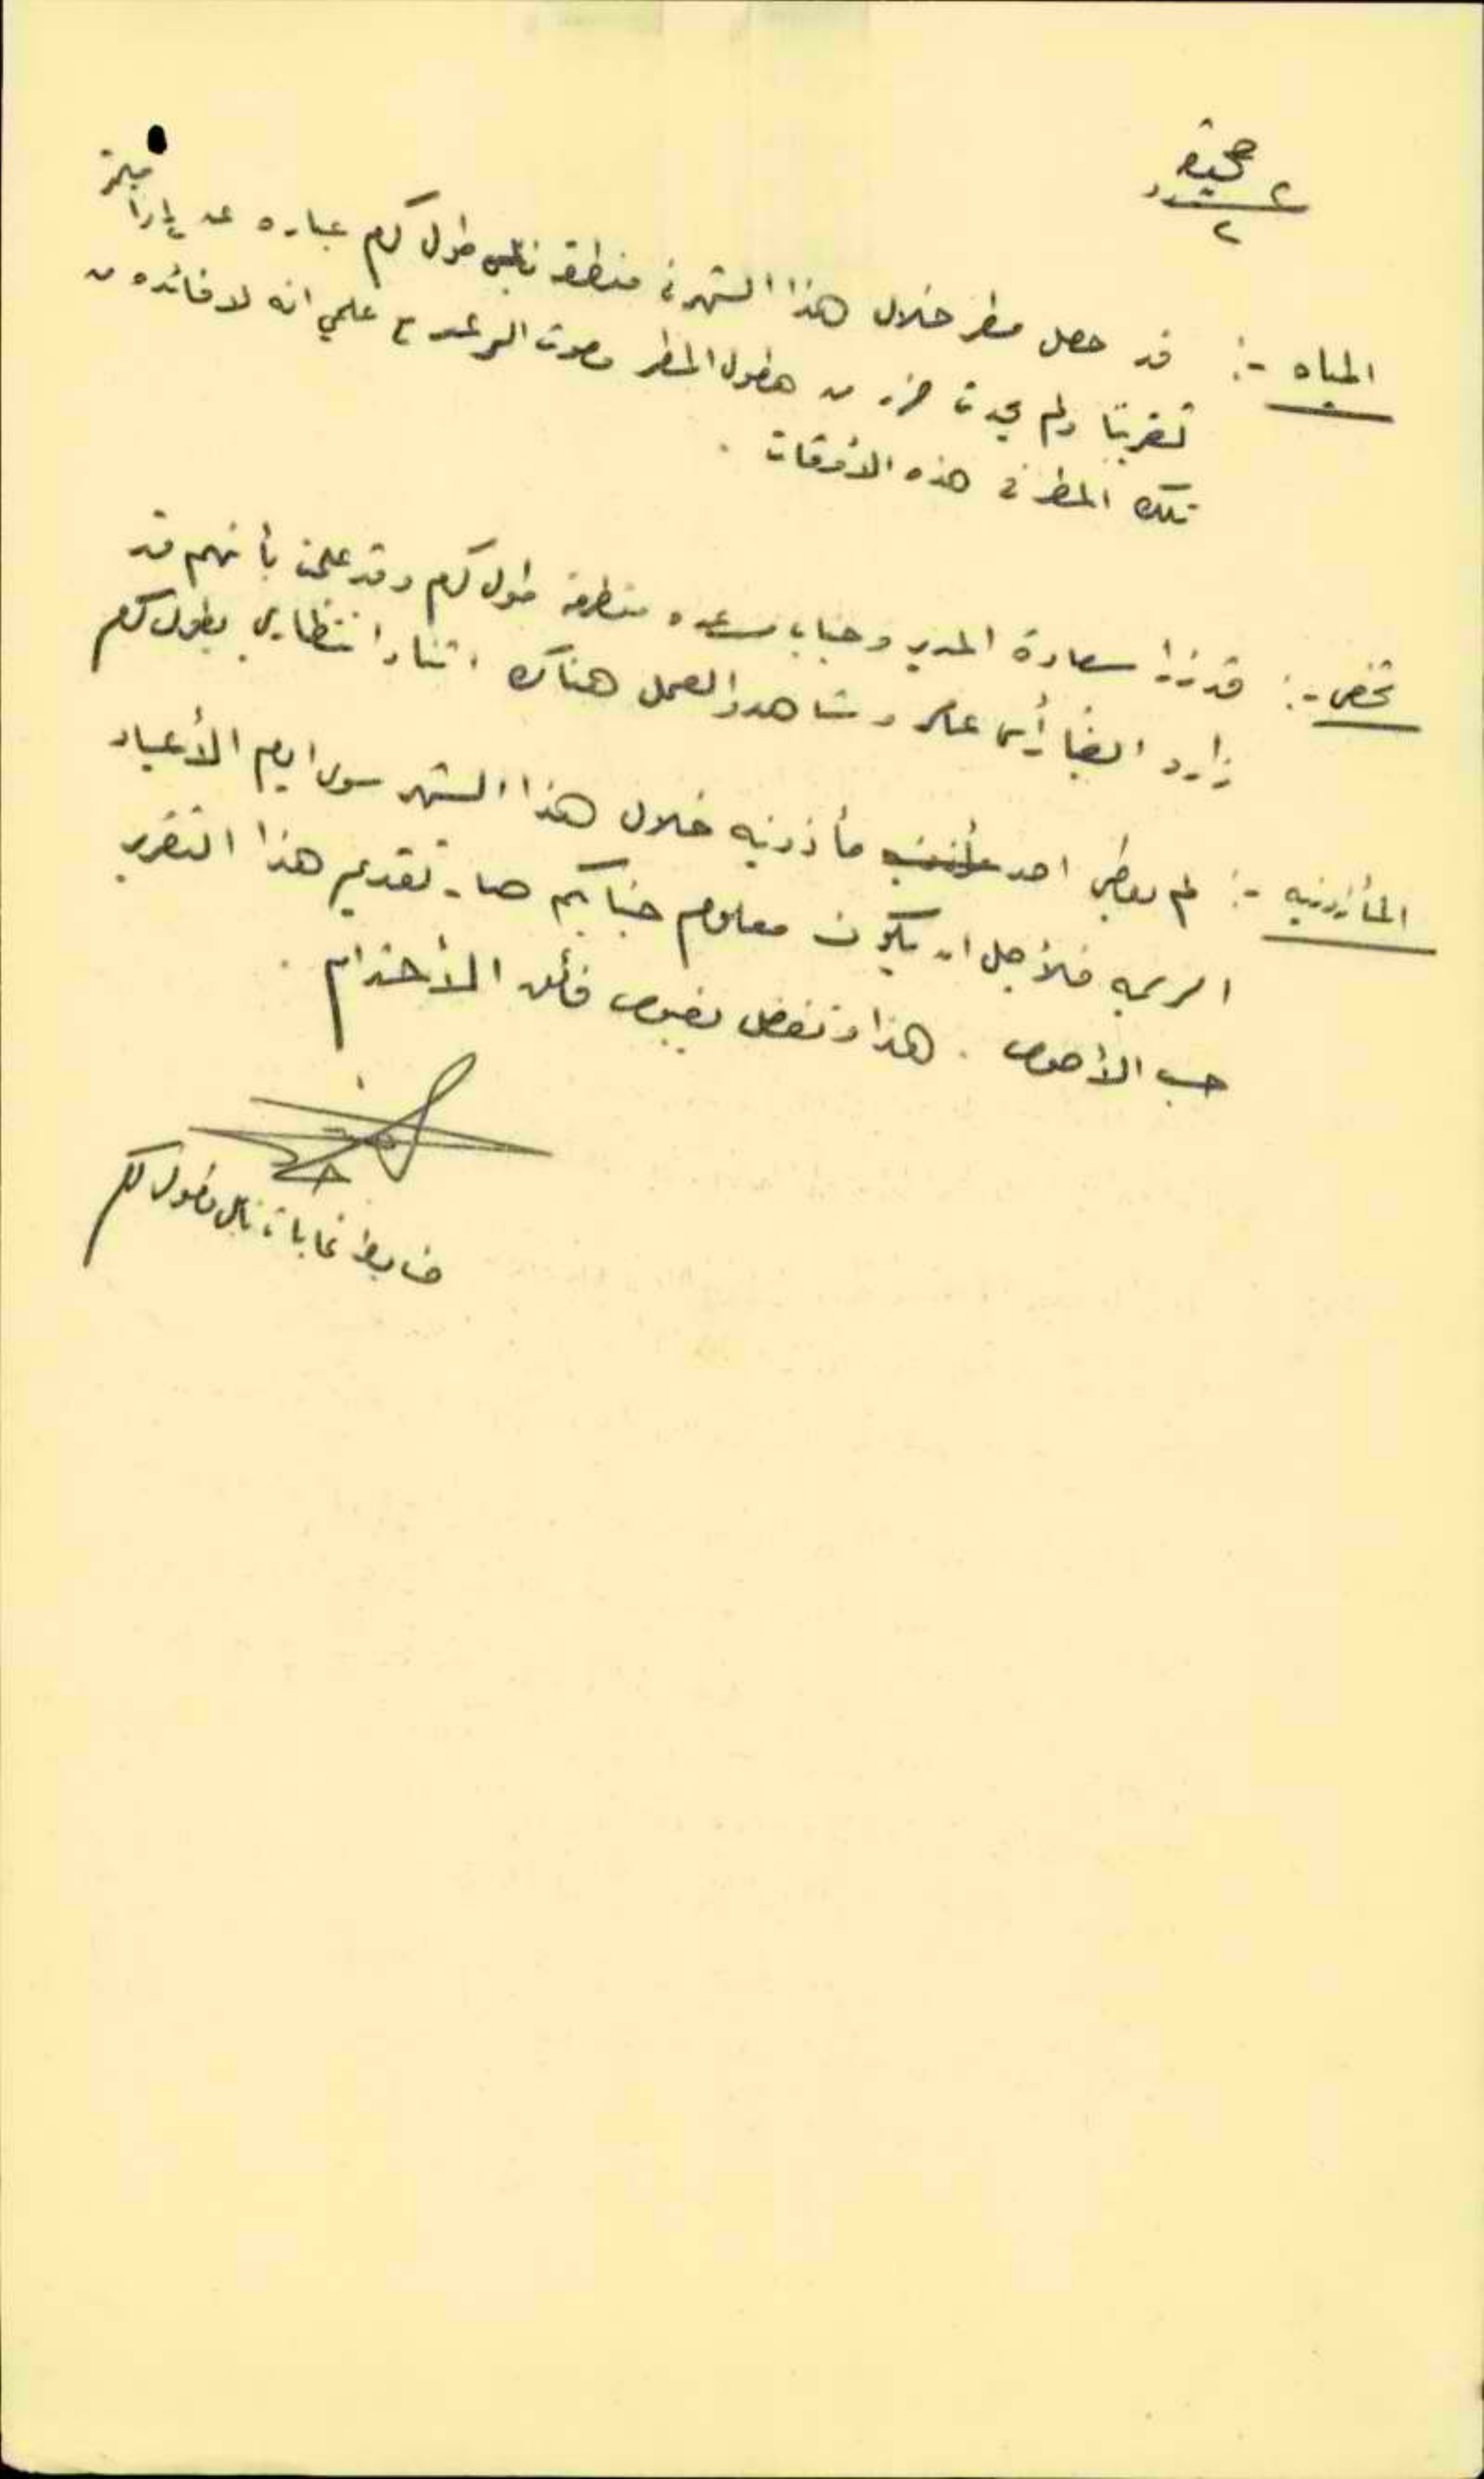 صحيفة ٢
٢
المياه :- قد حصل مطر خلال هذا الشهر في منطقة نابلس طول كرم عباره عن
تقريبًا ولم يحدث ضرر من هطول المطر وصوت الرعد مع علمي انه لا فائده من
تلك المطر في هذه الأوقات .
تخص :- قد زارا سعادة المدير وجناب مساعده منطقة طول كرم وقد علمت بأنهم قد
زارو ايضا رأس عطر وشاهدوا العمل هناك اثناء انتظاري بطول كرم
المأذونيه :- لم يعطى احد مأذونيه خلال هذا الشهر سوى ايام الأعياد
الرسميه فلأجل ان يكون معلوم جنابكم صار تقديم هذا التقرير
حسب الأصول . هذا وتفضل بقبول فائق الأحترام .
ضابط غابات نابلس وطول كرم